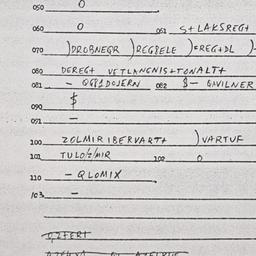 050 0
060 0 061 S+LAKSREG+
070 )DROBNEGR )REGBELE )=REG+DL )-
080 DEREG+ VETLANGNIS+TONALT+
081 - QGP1DOJERN 082 $- GAVILNER
090 $
091 -
100 ZOLMIRIBERVART+ )VARTUF
101 TULO/2/MIR 102 0
110 - QLOMIX
103 -
OZFERT